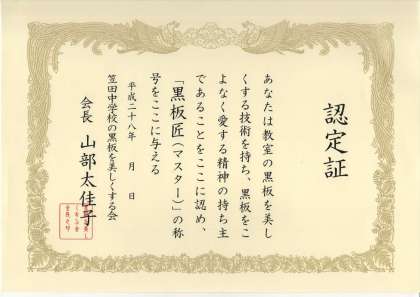 認定証
あなたは教室の黒板を美し
くする技術を持ち、黒板をこ
よなく愛する精神の持ち主
であることをここに認め、
「黒板匠(マスター)」の称
号をここに与える
平成二十八年 月 日
笠田中学校の黒板を美しくする会
会長 山部太佳子